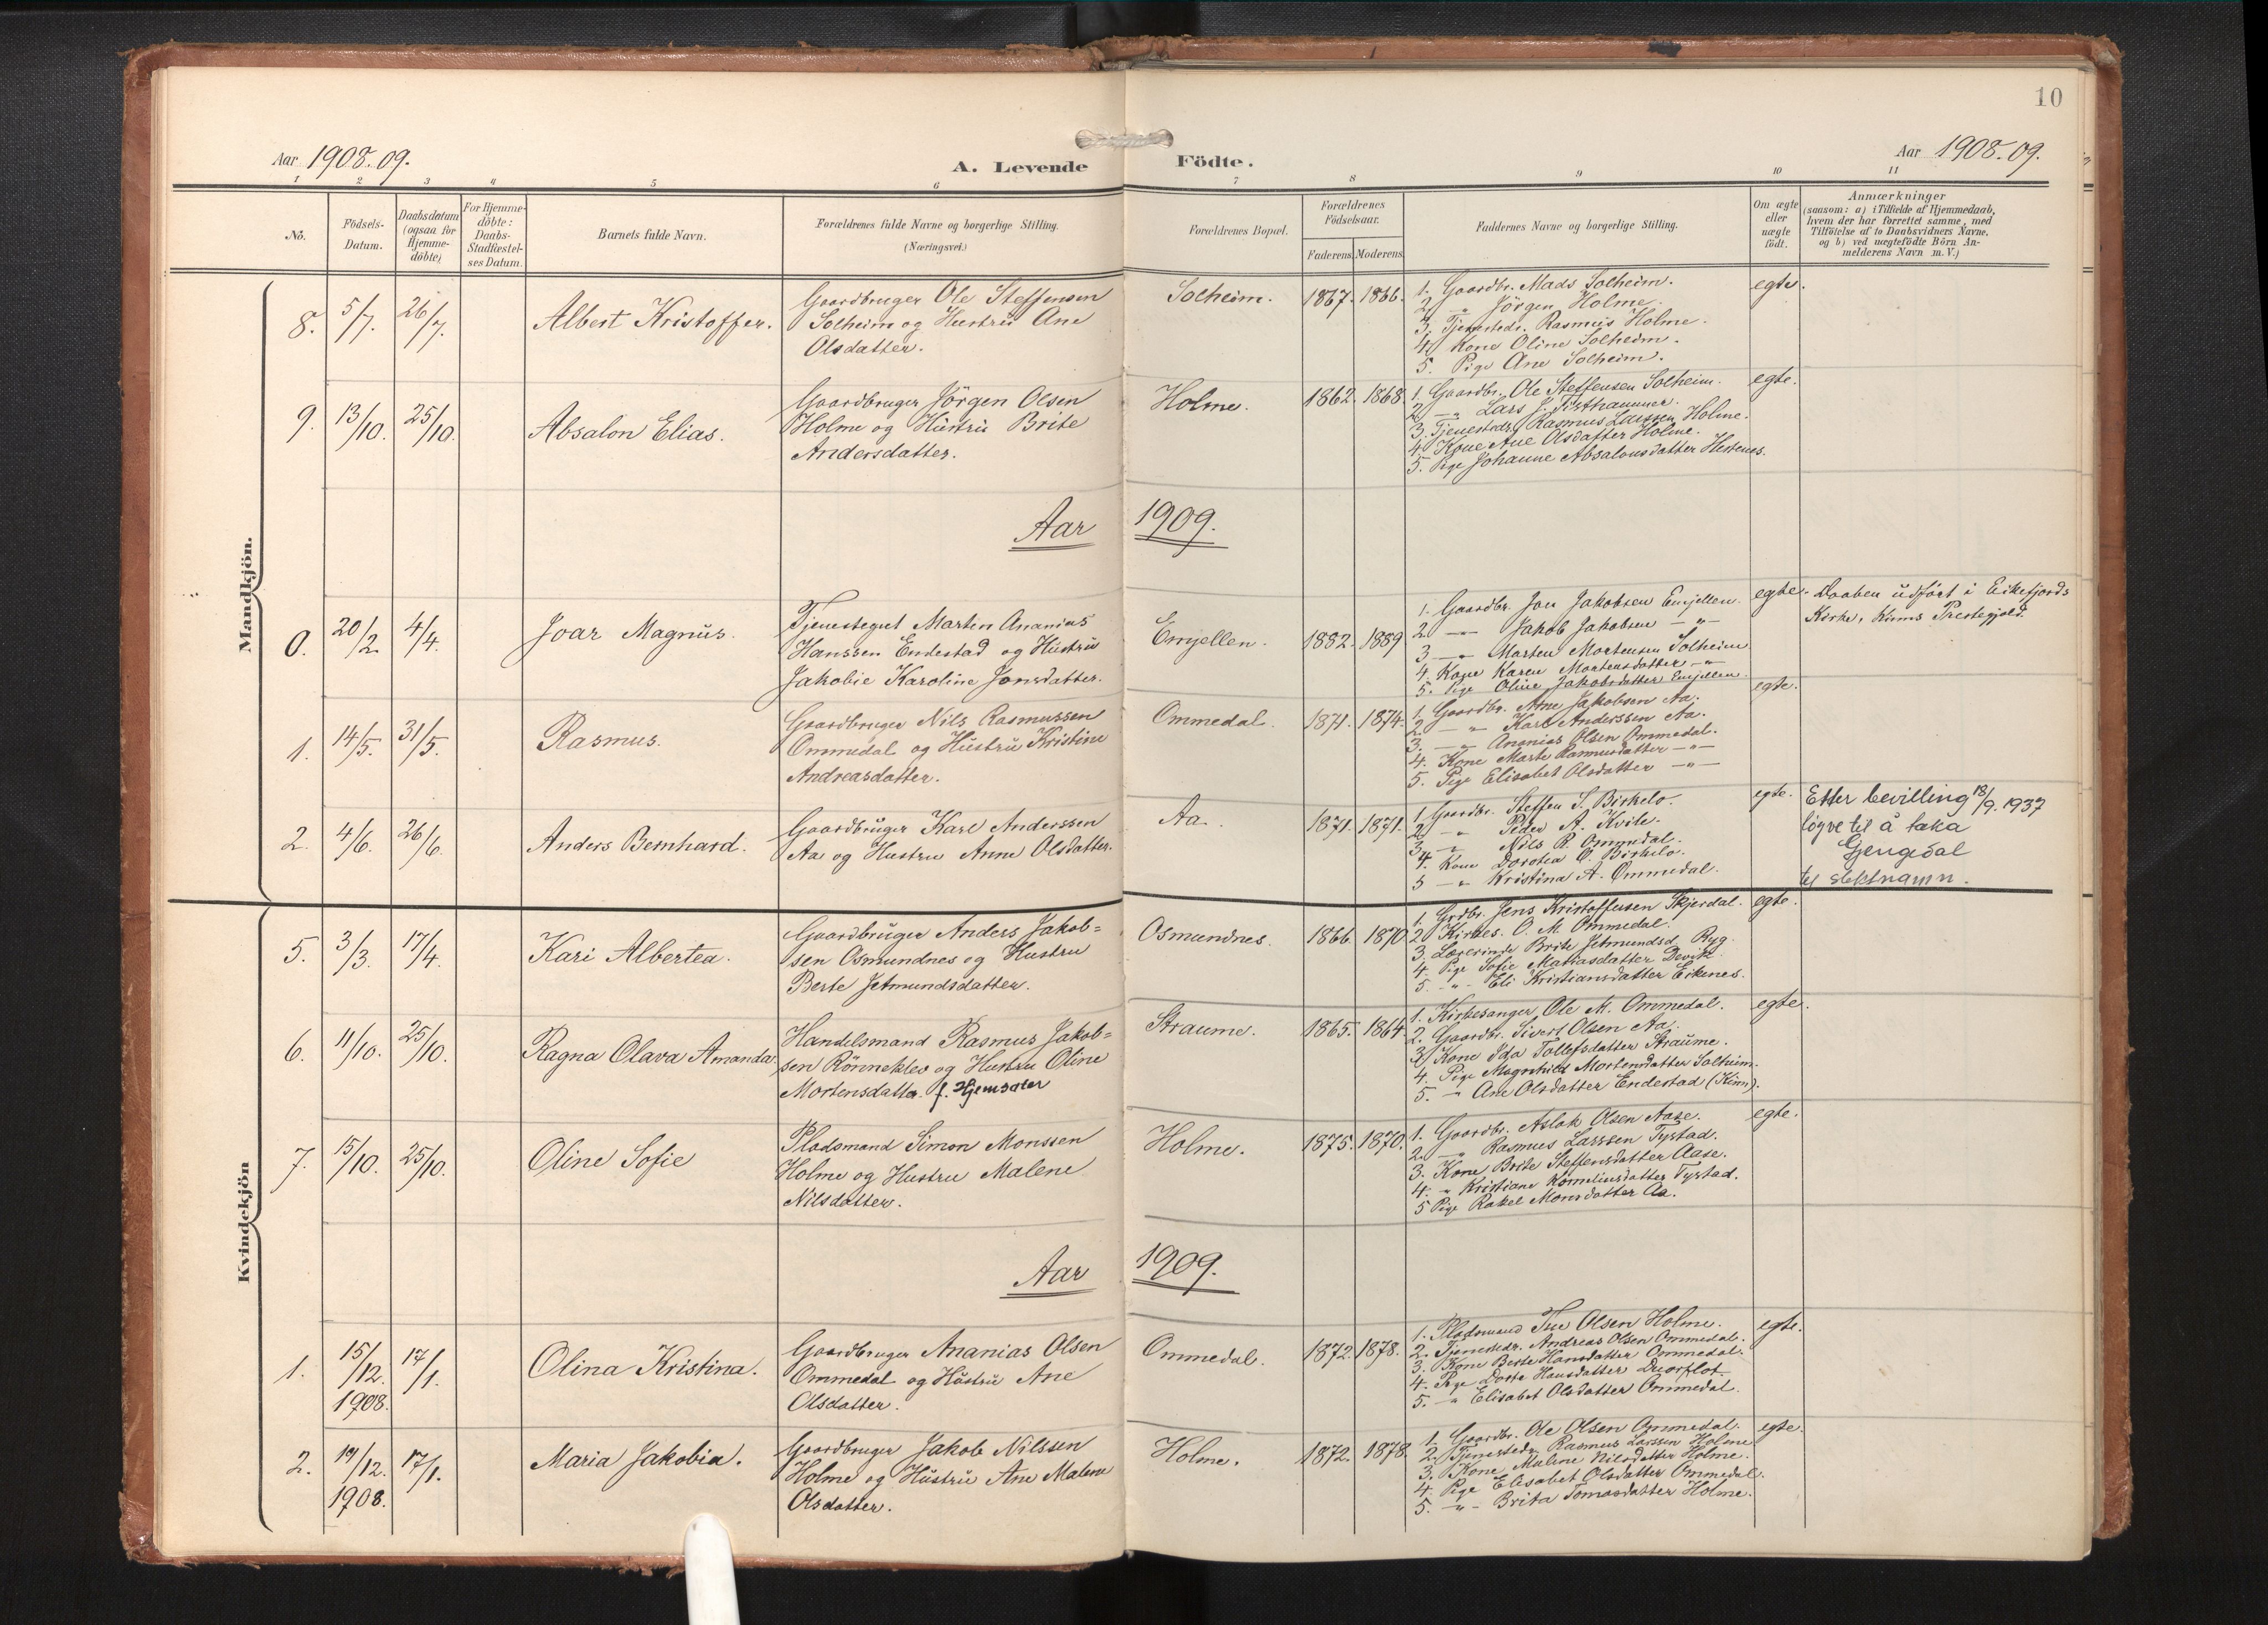 10
Aar 1908.09.
A. Levende Födte.
Aar 1908.09.
1 2 3 4 5 6 7 8 9 10 11
No.
Födsels-
Datum.
Daabsdatum
(ogsaa for
Hjemme-
döbte)
For Hjemme-
döbte:
Daabs-
Stadfæstel-
ses Datum.
Barnets fulde Navn.
Forældrenes fulde Navne og borgerlige Stilling.
(Næringsvei.)
Forældrenes Bopæl.
Forældrenes
Födselsaar.
Faderens. Moderens.
Faddernes Navne og borgerlige Stilling.
Om ægte
eller
uægte
födt.
Anmærkninger
(saasom: a) i Tilfælde af Hjemmedaab,
hvem der har forrettet samme, med
Tilföielse af to Daabsvidners Navne,
og b) ved uægtefödte Börn An-
melderens Navn m. V.)
Mandkjön.
8. 5/7. 26/7. Albert Kristoffer.
Gaardbruger Ole Steffensen
Solheim og Hustru Ane
Olsdatter.
Solheim. 1867. 1866.
1. Gaardbr. Mads Solheim.
2. " Jörgen Holme.
3. Tjenestedr. Rasmus Holme.
4. Kone Oline Solheim.
5. Pige Ane Solheim.
egte.
9. 13/10. 25/10. Absalon Elias.
Gaardbruger Jörgen Olsen
Holme og Hustru Brite
Andersdatter.
Holme. 1862. 1868.
1. Gaardbr. Ole Steffensen Solheim.
2. — " Lars J. Tisthammer.
3. Tjenestedr. Rasmus Larssen Holme.
4. Kone Ane Olsdatter Holme.
5. Pige Johanne Absalonsdatter Hestenes.
egte.
Aar 1909.
0. 20/2. 4/4. Joar Magnus.
Tjenestegut Martin Ananias
Hanssen Endestad og Hustru
Jakobie Karoline Jonsdatter.
Emjellen. 1882. 1889
1. Gaardbr. Jon Jakobsen Emjellen.
2. — " Jakob Jakobsen — " —
3 — " Morten Mortensen Solheim
4. Kone Karen Mortensdatter — " —
5. Pige Oline Jakobsdatter Emjellen.
egte.
Daaben udfört i Eikefjords
Kirke, Kinns Prestegjeld.
1. 14/5. 31/5. Rasmus.
Gaardbruger Nils Rasmussen
Ommedal og Hustru Kristine
Andreasdatter.
Ommedal. 1871. 1874.
1. Gaardbr. Arne Jakobsen Aa.
2. — " Karl Anderssen Aa.
3. — " Ananias Olsen Ommedal.
4. Kone Marte Rasmusdatter — " —
5. Pige Elisabet Olsdatter — " —
egte.
2. 4/6. 26/6. Anders Bernhard.
Gaardbruger Karl Anderssen
Aa og Hustru Anne Olsdatter.
Aa. 1871. 1871.
1 Gaardbr. Steffen S. Birkelo.
2 — " Peder A. Kvile.
3 — " Nils R. Ommedal.
4. Kone Dorotea O. Birkelo.
5 — " Kristina A. Ommedal.
egte.
Etter bevilling 18/9. 1937
löyve til å taka
Gjengedal
til slektnamn.
Kvindekjön
5. 3/3. 17/4. Kari Albertea.
Gaardbruger Anders Jakob=
sen Osmundnes og Hustru
Berte Jetmundsdatter.
Osmundnes. 1866. 1870
1. Grdbr. Jens Kristoffersen Skjerdal.
2 Kirkes. O. M. Ommedal.
3. Lærerinde Brite Jetmundsd. Ryg.
4. Pige Sofie Matiasdatter Devik.
5. — " — Eli Kristiansdatter Eikenes.
egte.
6. 11/10. 25/10. Ragna Olava Amanda.
Handelsmand Rasmus Jakob=
sen Rönneklev og Hustru Oline
Mortensdatter f. Hjemsæter
Straume. 1865. 1864
1. Kirkesanger Ole M. Ommedal.
2. Gaardbr. Sivert Olsen Aa.
3. Kone Ida Tollefsdatter Straume.
4. Pige Magnhild Mortensdatter Solheim.
5. — " Ane Olsdatter Endestad (Kinn).
egte.
7. 15/10. 25/10. Oline Sofie
Pladsmand Simon Monssen
Holme og Hustru Malene
Nilsdatter.
Holme. 1875. 1870.
1. Gaardbr. Aslak Olsen Aase.
2. — " Rasmus Larssen Tystad.
3. Kone Brite Steffensdatter Aase.
4. — " Kristiane Korneliusdatter Tystad.
5 Pige Rakel Monsdatter Aa.
egte.
Aar 1909.
1. 15/12. 1908. 17/1. Olina Kristina.
Gaardbruger Ananias Olsen
Ommedal og Hustru Ane
Olsdatter.
Ommedal. 1872. 1878.
1. Pladsmand Olsen Holme.
2. Tjenestedr. Andreas Olsen Ommedal.
3. Kone Berte Hansdatter Ommedal.
4. Pige Dorte Hansdatter
5. — " Elisabet Olsdatter Ommedal.
egte.
2. 19/12. 1908. 17/1. Maria Jakobia.
Gaardbruger Jakob Nilssen
Holme og Hustru Ane Malene
Olsdatter.
Holme. 1872. 1878.
1. Gaardbr. Ole Olsen Ommedal.
2. Tjenestedr. Rasmus Larssen Holme
3. Kone Malene Nilsdatter Holme.
4. Pige Elisabet Olsdatter Ommedal.
5. — " — Brita Tomasdatter Holme.
egte.